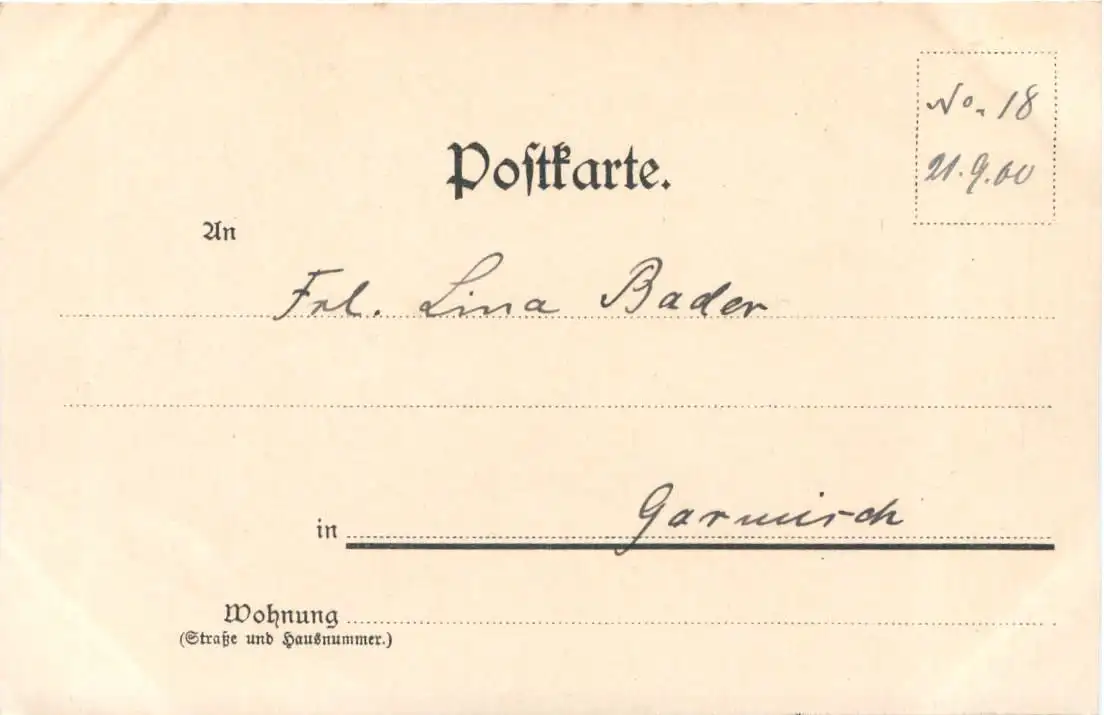 No. 18
21.9.00
Postkarte.
An
Frl. Lina Bader
in Garmisch
Wohnung
(Straße und Hausnummer.)